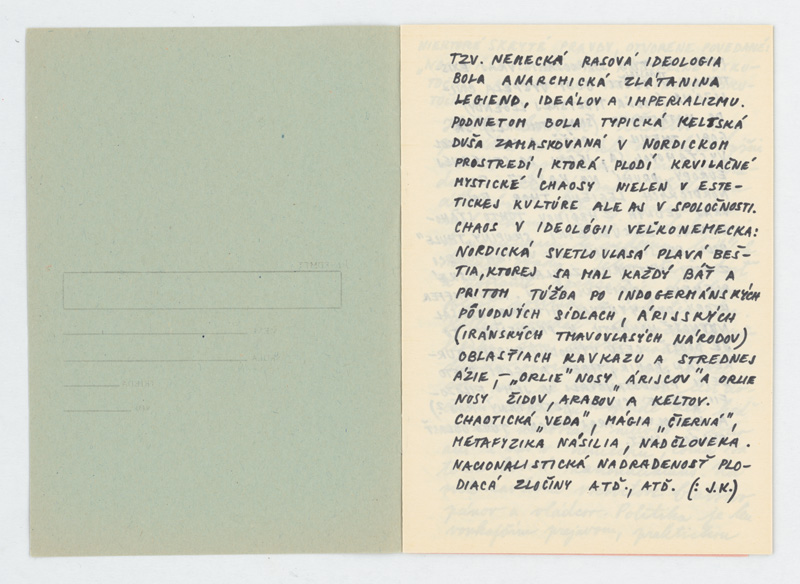 TZV. NEMECKÁ RASOVÁ IDEOLOGIA
BOLA ANARCHICKÁ ZLÁTANINA
LEGIEND, IDEÁLOV A IMPERIALIZMU.
PODNETOM BOLA TYPICKÁ KELTSKÁ
DUŠA ZAMASKOVANÁ V NORDICKOM
PROSTREDÍ, KTORÁ PLODÍ KRVILAČNÉ
MYSTICKÉ CHAOSY NIELEN V ESTE-
TICKEJ KULTÚRE ALE AJ V SPOLOČNOSTI.
CHAOS V IDEOLÓGII VEĽKONEMECKA:
NORDICKÁ SVETLOVLASÁ PLAVÁ BEŠ-
TIA, KTOREJ SA MAL KAŽDÝ BÁŤ A
PRITOM TÚŽBA PO INDOGERMÁNSKÝCH
PÔVODNÝCH SÍDLACH, ÁRIJSKÝCH
(IRÁNSKÝCH TMAVOVLASÝCH NÁRODOV)
OBLASŤIACH KAVKAZU A STREDNEJ
ÁZIE, – „ORLIE" NOSY „ÁRIJCOV" A ORLIE
NOSY ŽIDOV, ARABOV A KELTOV.
CHAOTICKÁ „VEDA", MÁGIA „ČIERNÁ",
METAFYZIKA NÁSILIA, NADČLOVEKA.
NACIONALISTICKÁ NADRADENOSŤ PLO-
DIACÁ ZLOČINY ATĎ., ATĎ. (: J.K.)